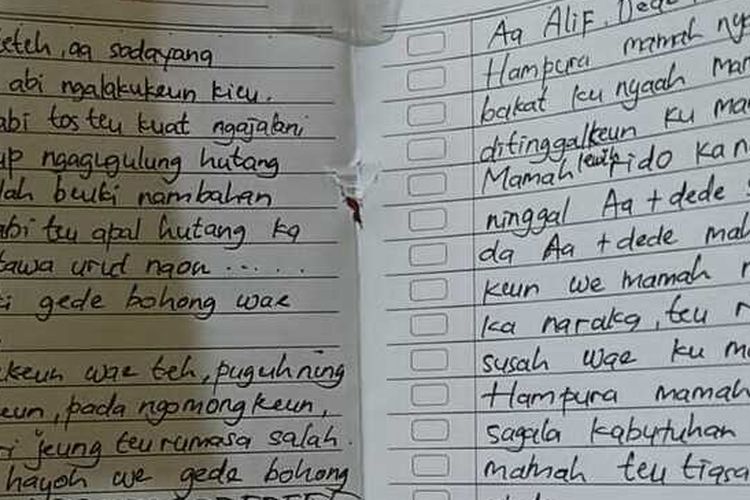 eteh, aa sadayana
abi ngalakukeun kieu.
abi tos teu kuat ngajalani
up ngagugulung hutang
lah beuki nambahan
abi teu apal hutang ka
tawa urid naon ......
gede bohong wae
keun wae teh, puguh ning
eun, pada ngomongkeun,
ri jeung teu rumasa salah.
hayoh we gede bohong
Aa Alif, Dede
Hampura mamah
bakat ku nyaah
ditinggalkeun ku
Mamah leuih rido
ninggal Aa + dede
da Aa + dede
keun we mamah
ka naraka, teu
susah wae ku
Hampura mamah
sagala kabutuhan
mamah teu